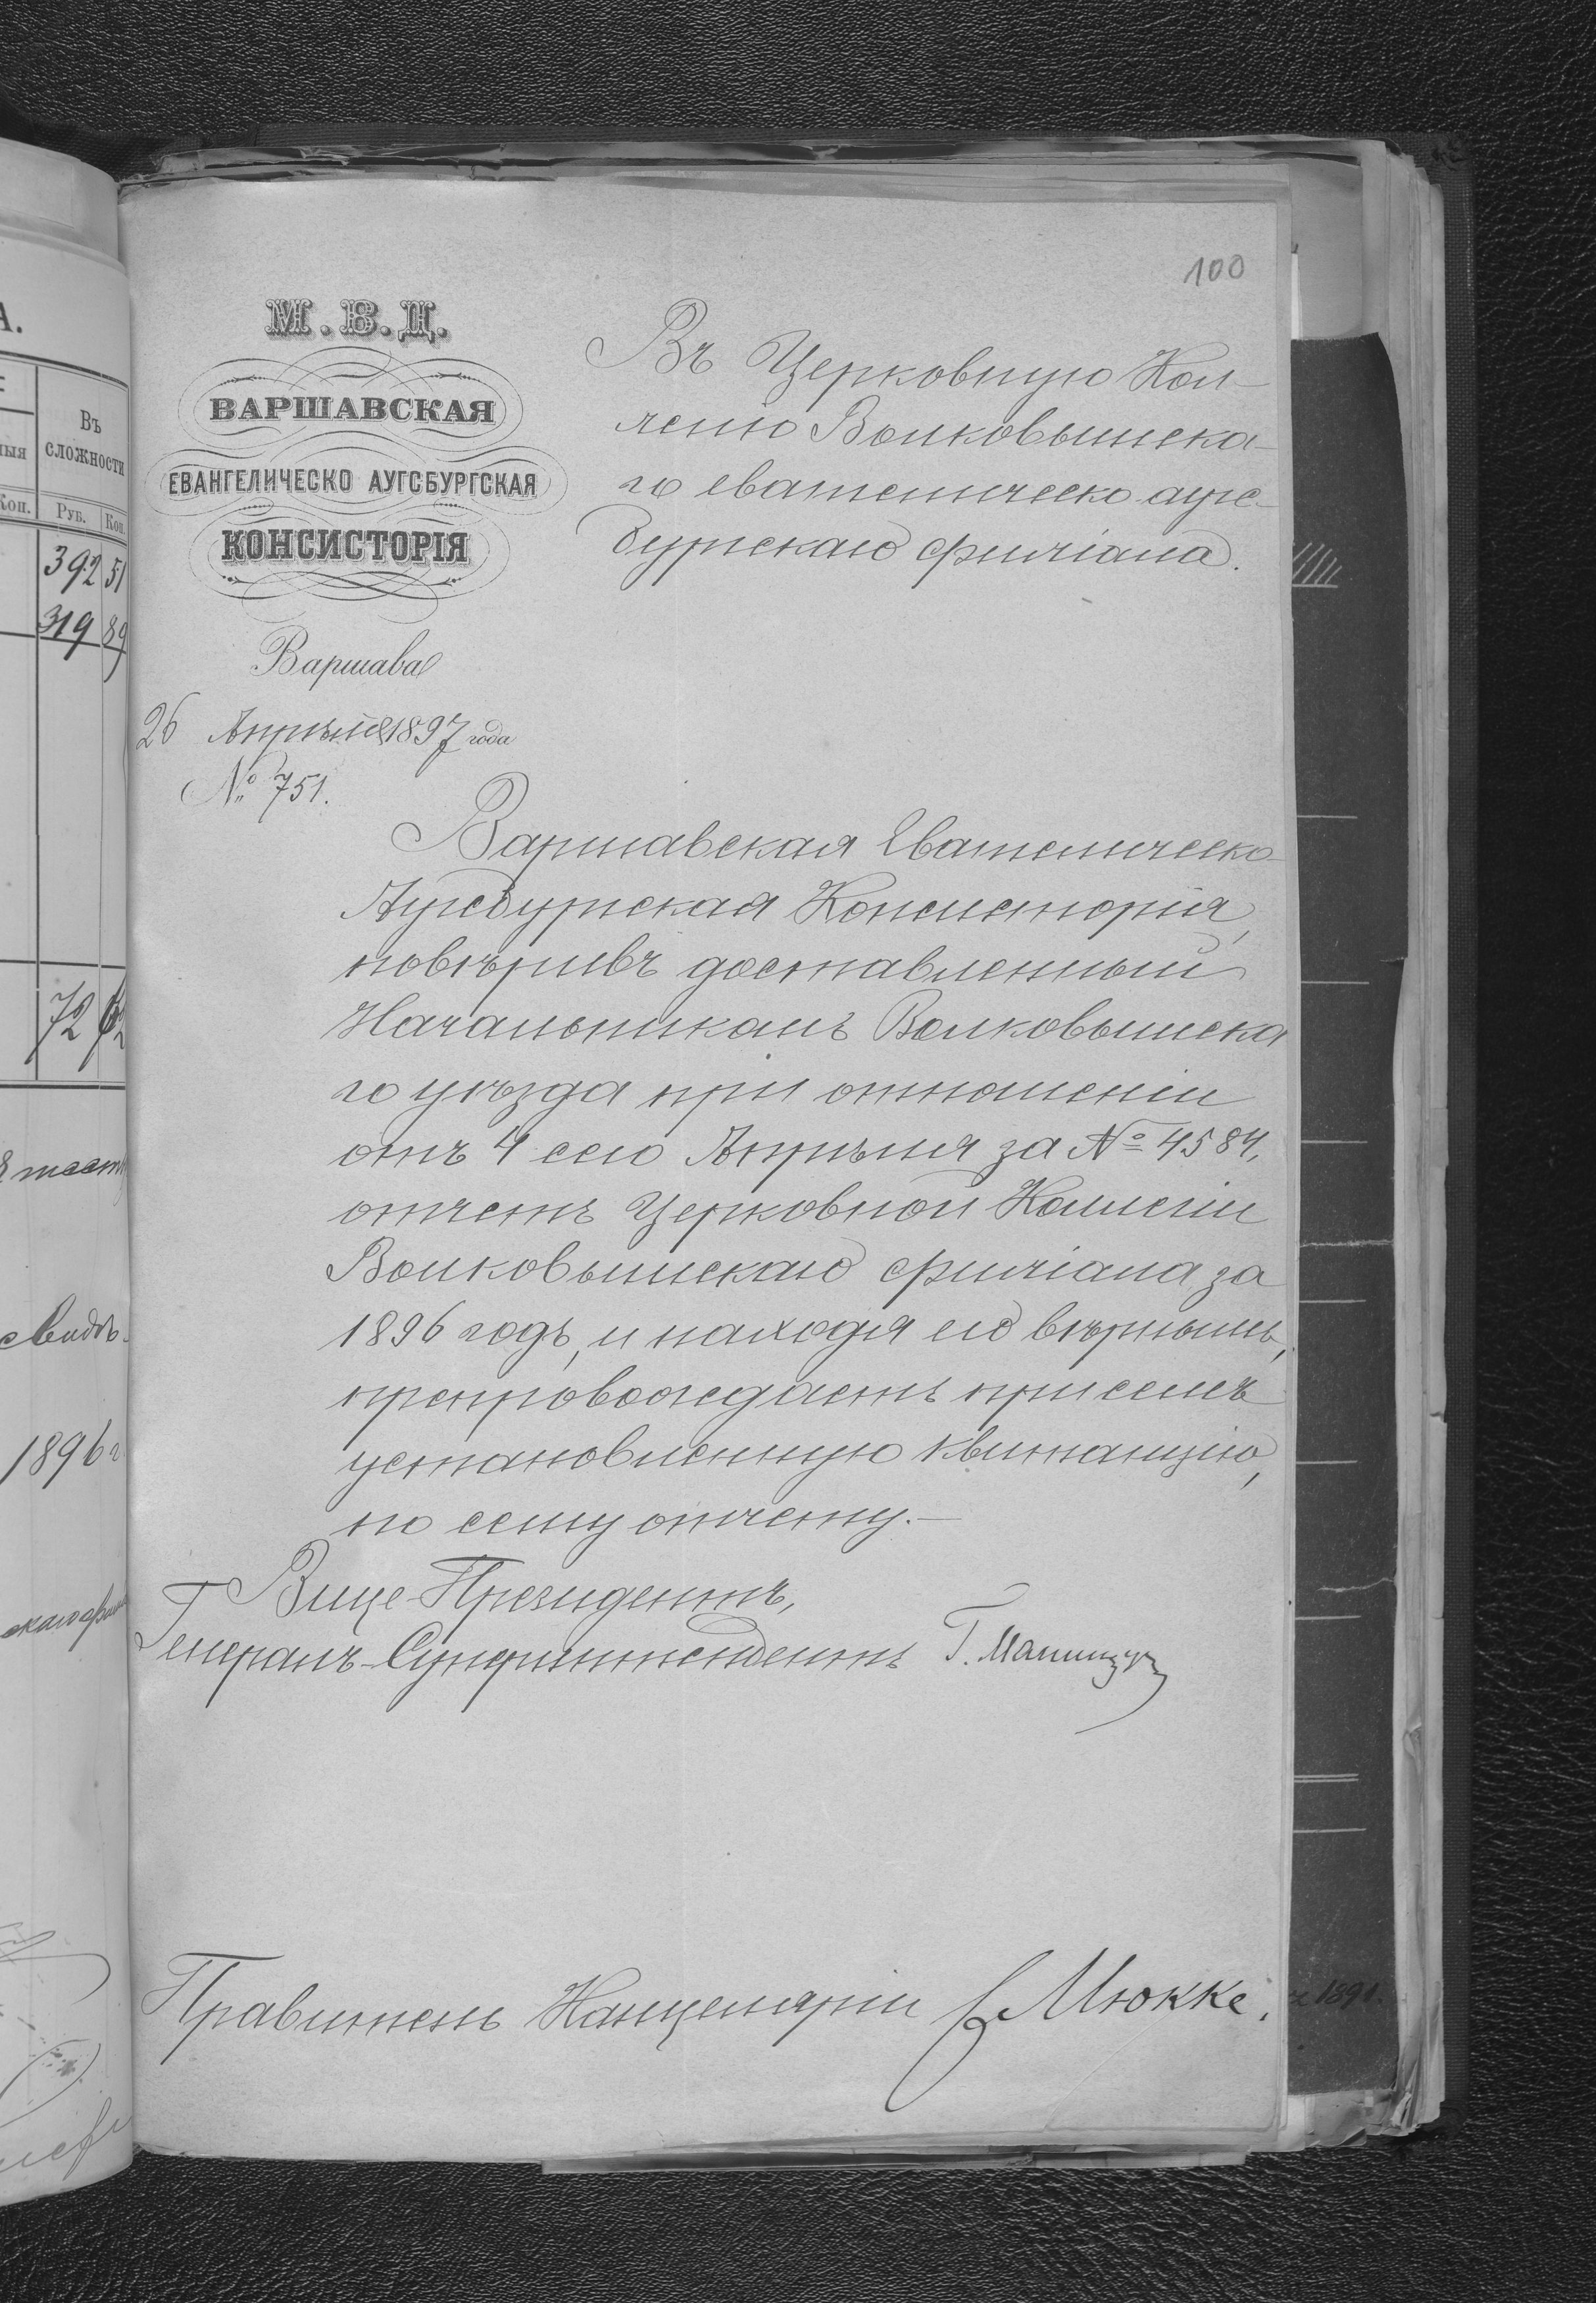 А.
Въ
сложности
Коп. Руб. Коп.
392 51
319 89
72 62
1896 г
100
М.В.Д.
ВАРШАВСКАЯ
ЕВАНГЕЛИЧЕСКО АУГСБУРГСКАЯ
КОНСИСТОРІЯ
Варшава
26 Апрѣля 1897 года
№ 751.
Въ Церковную Кол-
легію Волковышска-
го евангелическо аугс-
бургскаго филіала.
Варшавская Евангелическо-
Аугсбургская Консисторія,
повѣривъ доставленный
Начальникомъ Волковышска
го уѣзда при отношеніи
отъ 4 сего Апрѣля за № 4584,
отчетъ Церковной Коллегіи
Волковышскаго филіала за
1896 годъ, и находя его вѣрнымъ,
препровождаетъ при семъ
установленную квитанцію,
по сему отчету.—
Вице-Президентъ,
Генералъ-Суперинтендентъ Г. Маницу
Правитель Канцеляріи Мюкке.
1891.